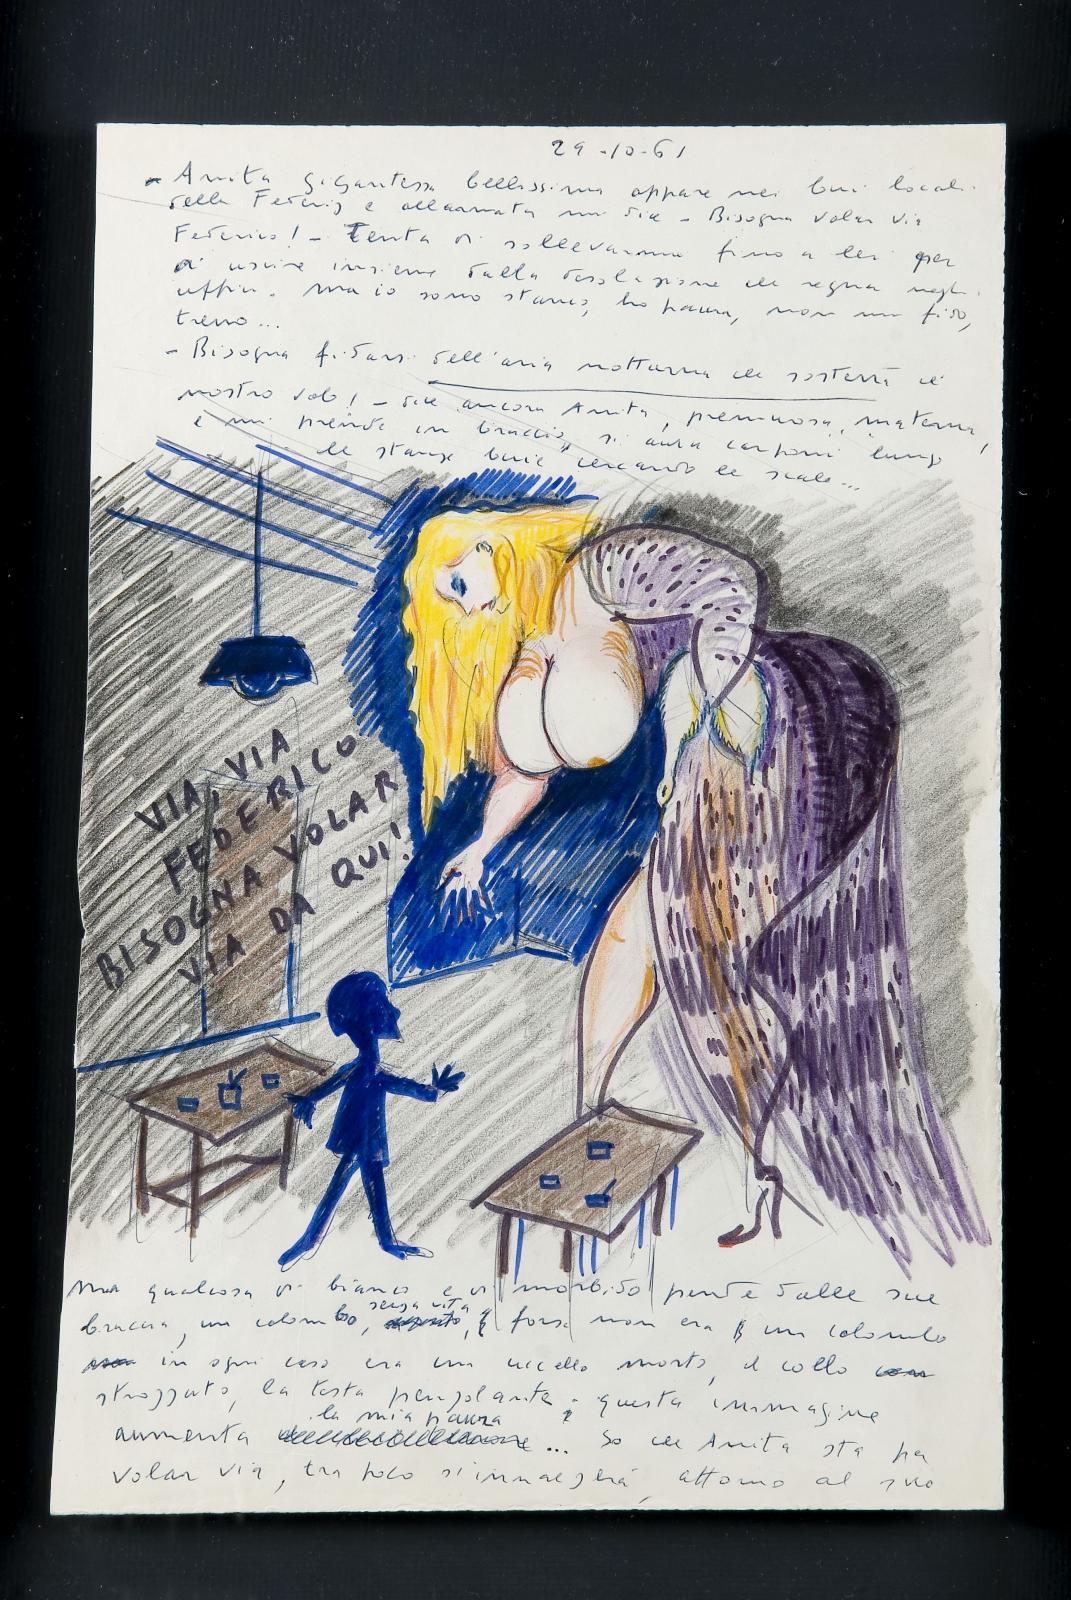 29-10-61
- Anita gigantessa bellissima appare nei bui locali
della Federiz e allarmata mi dice - Bisogna volar via
Federico! - Tenta di sollevarmi fino a lei per
di uscire insieme dalla desolazione che regna negli
uffici. Ma io sono stanco, ho paura, non mi fido,
tremo...
- Bisogna fidarsi dell'aria notturna che sosterrà il
nostro volo! - dice ancora Anita, premurosa, materna,
e mi prende in braccio, si avvia carponi lungo
le stanze buie cercando le scale...
VIA, VIA
FEDERICO
BISOGNA VOLAR
VIA DA QUI!
Ma qualcosa di bianco e di morbido pende dalle sue
braccia, un colombo, senza vita, forse non era un colombo
in ogni caso era un uccello morto, il collo
strozzato, la testa penzolante e questa immagine
aumenta la mia paura ... So che Anita sta per
volar via, tra poco si innalzerà, attorno al suo